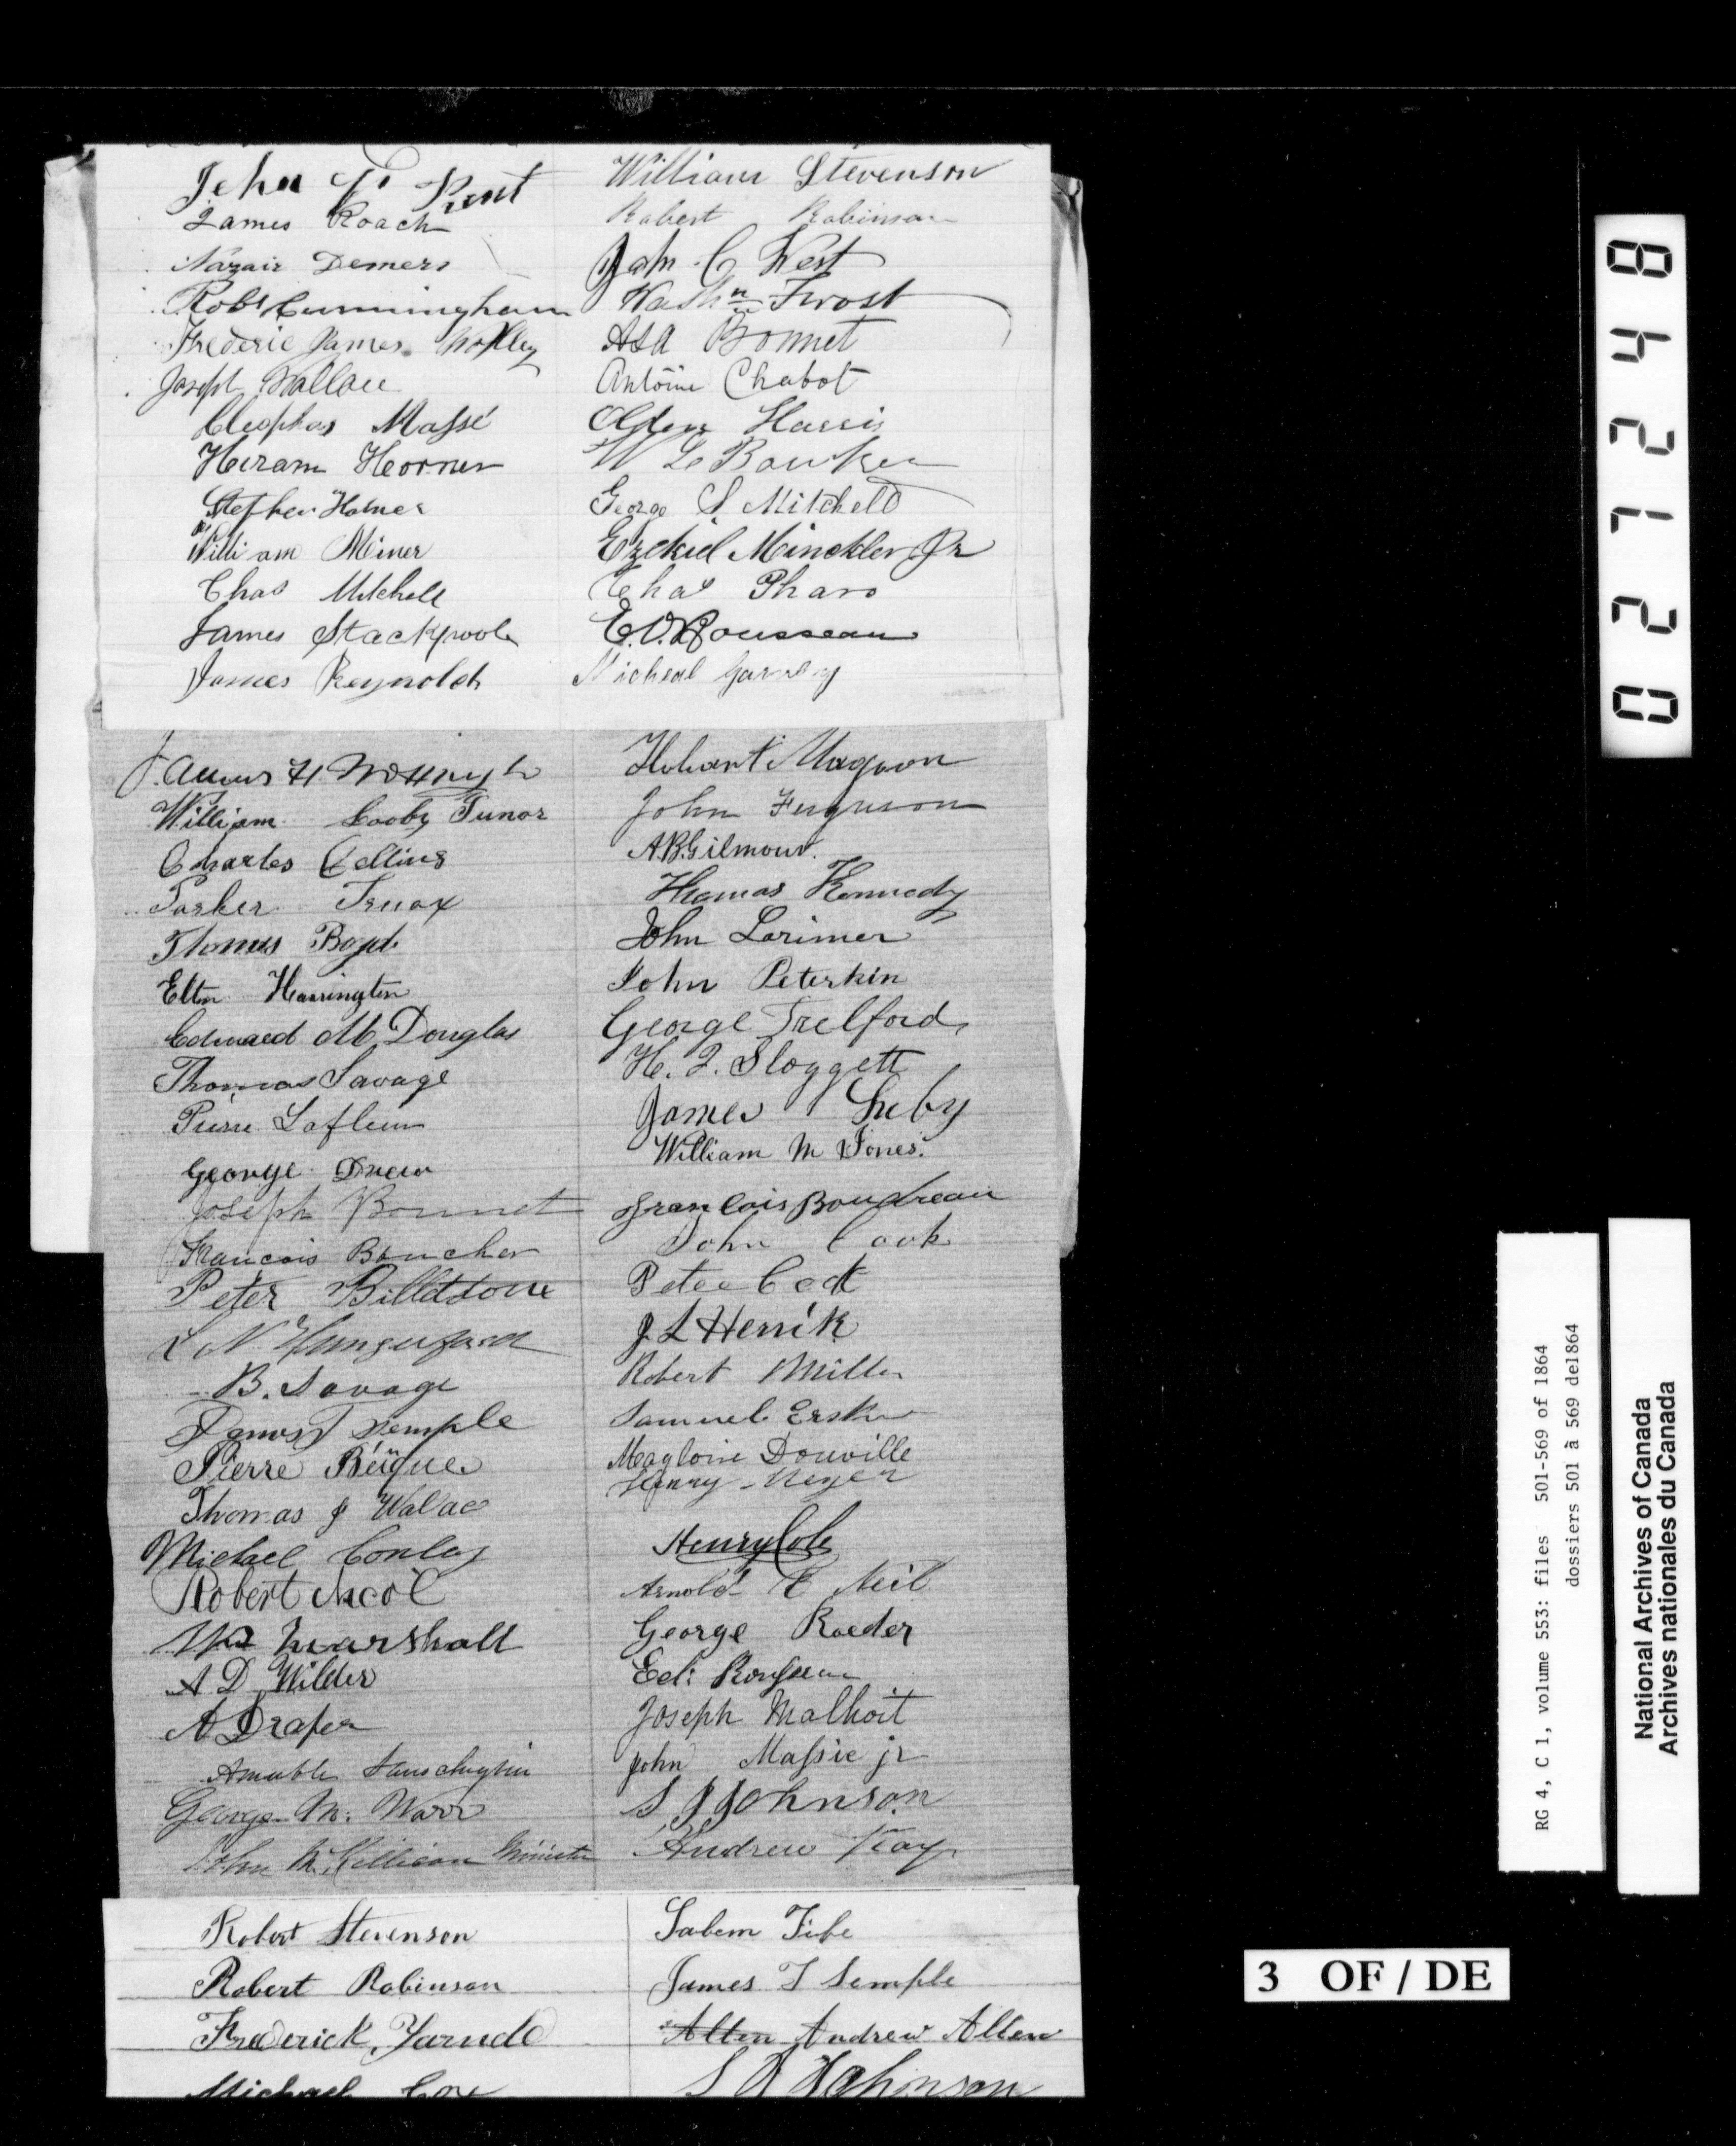 John P Kent
James Roach
Nazair Demers
Robt Cunningham
Frederic James
Joseph Wallace
Cleophas Massé
Hiram Horner
Stephen Holmes
William Miner
Chas Mitchell
James Stackpoole
James Reynolds
William Stevenson
Robert Robinson
John C West
Washn Frost
Asa Bonnet
Antoine Chabot
Alden Harris
W Le Bowker
George S Mitchell
Ezekiel Minckler Jr
Chas Pharo
E.V. Rousseau
Micheal
James H
William Cooby
Charles Collins
Parker Truax
Thomas Boyd
Elton Harrington
Edward Mc Douglas
Thomas Savage
Pierre Lafleur
George Drew
Joseph Bonnet
Francois Boucher
Peter
L N Hungerford
B. Savage
James T Semple
Pierre Béïque
Thomas J Walace
Michael Conley
Robert Nicol
Wm Marshall
A D Wilder
A Draper
Amable
George M. Warr
John McKillican Minister
Hobart Magoon
John Ferguson
A.B. Gilmour.
Thomas Kennedy
John Lorimer
John Peterkin
George Trelford
H. J. Sloggett
James
William M Jones.
Francois Boudreau
John Cook
Peter Cock
J L Herrik
Robert Miller
Samuel
Magloire Douville
Henry Meyer
Henry Cole
Arnold E Neil
George Roeder
Ed: Rousseau
Joseph Malhoit
John Massie jr
S J Johnson
Andrew Kay
Robert Stevenson
Robert Robinson
Frederick
Michael Cox
Salem
James T Semple
Allen Andrew Allen
S A Hohinson
0 2 7 2 4 8
RG 4, C 1, volume 553: files 501-569 of 1864
dossiers 501 à 569 de1864
National Archives of Canada
Archives nationales du Canada
3 OF / DE